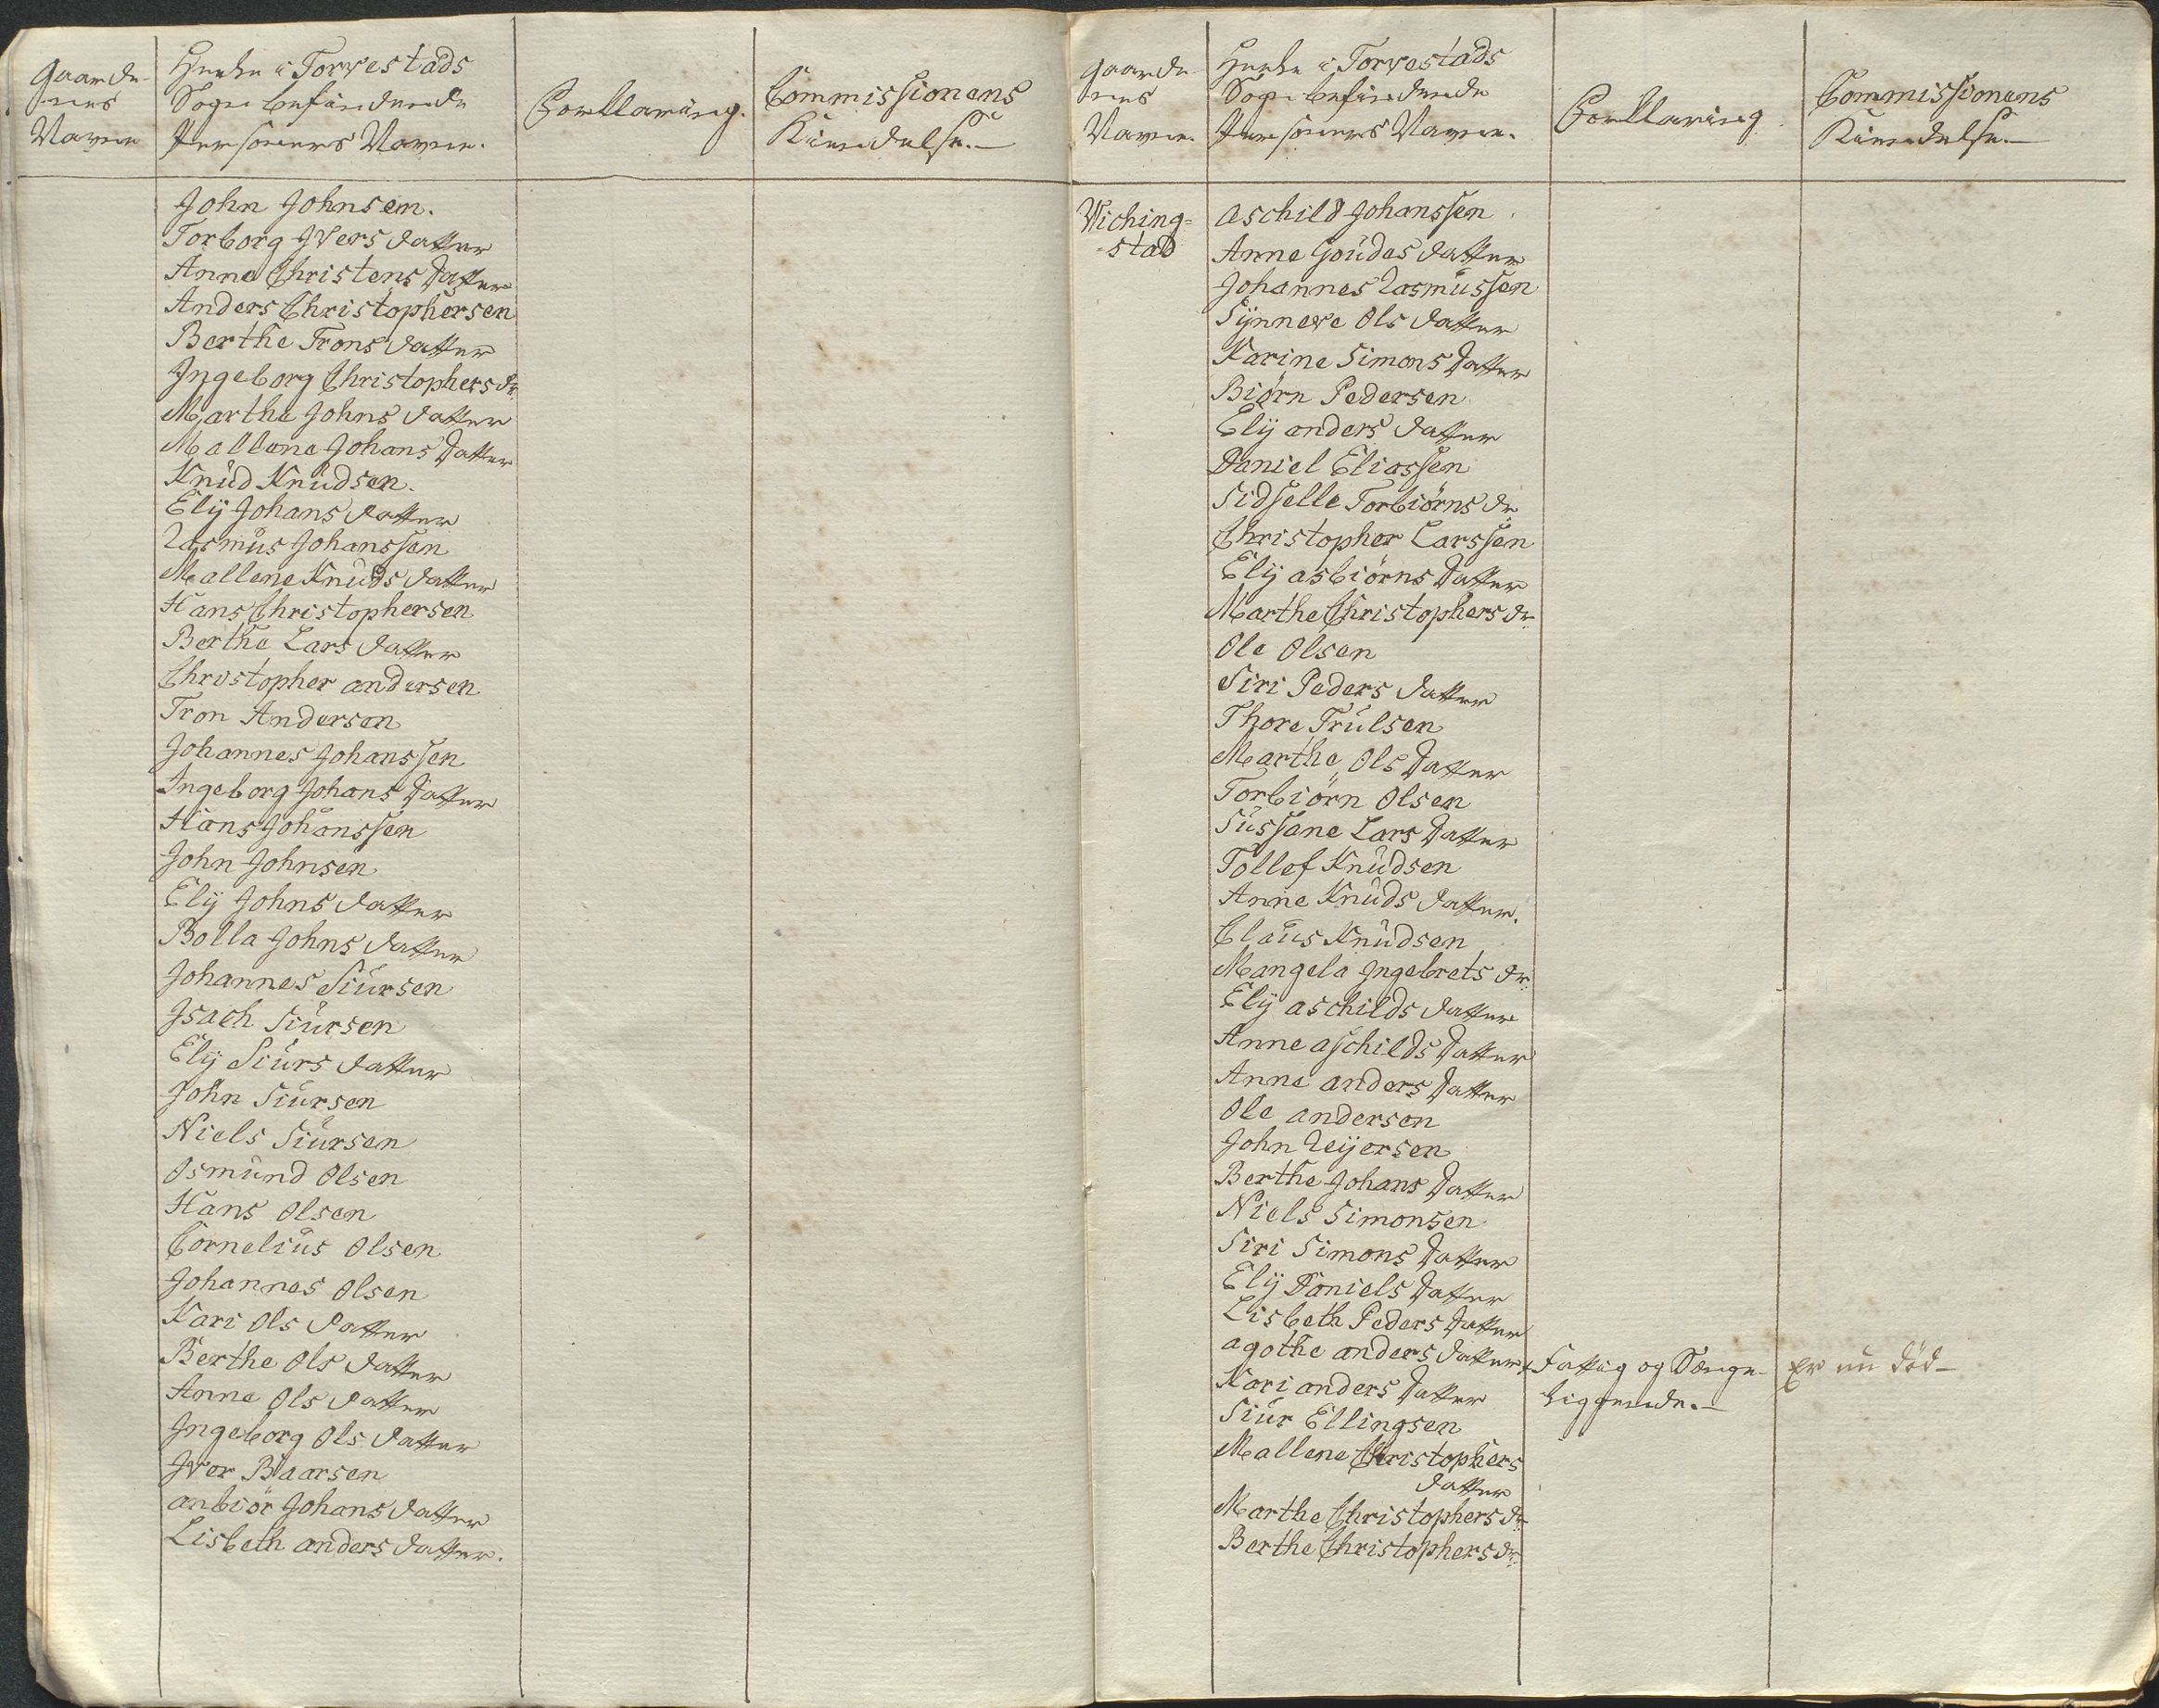 Gaarde-
nes
Navne
Heele i Torvestads
Sogn befindende
Personers Navne.
Forklaring.
Commissionens
Kiendelse.
John Johnsen.
Torborg Ivers datter
Anne Christens Datter
Anders Christophersen
Berthe Trons datter
Ingeborg Christophers dr.
Marthe Johns datter
Mallene Johans Datter
Knud Knudsen.
Elij Johans datter
Rasmus Johanssen
Mallene Knuds datter
Hans Christophersen
Berthe Lars datter
Christopher andersen
Tron Andersen
Johannes Johanssen
Ingeborg Johans Datter
Hans Johanssen
John Johnsen
Elij Johns datter
Bolla Johns datter
Johannes Siursen
Isach Siursen
Elij Siurs datter
John Siursen
Niels Siursen
Osmund Olsen
Hans Olsen
Cornelius Olsen
Johannes Olsen
Kari Ols datter
Berthe Ols datter
Anne Ols datter
Ingeborg Ols datter
Iver Baarsen
anbiör Johans datter
Lisbeth anders datter.
Gaarde-
nes
Navne.
Heele i Torvestads
Sogn befindende
Personers Navne.
Forklaring
Commissionens
Kiendelse.
Viching-
-stad
aschild Johanssen
Anne Goudes datter
Johannes Rasmussen
Sÿnneve Ols datter
Karine Simons Datter
Biörn Pedersen
Elij anders datter
Daniel Eliassen
Sidselle Torbiörns dr
Christopher Larssen
Elij asbiörns Datter
Marthe Christophers dr
Ole Olsen
Siri Peders datter
Thore Trulsen
Marthe Ols Datter
Torbiörn Olsen
Sussane Lars Datter
Tollef Knudsen
Anne Knuds datter.
Claus Knudsen
Mangela Ingebrets dr.
Elij aschilds datter
Anne aschilds Datter
Anne anders Datter
Ole andersen
John Reijersen
Berthe Johans Datter
Niels Simonsen
Siri Simons Datter
Elij Daniels Datter
Lisbeth Peders Datter
agothe anders datter + Fattig og Senge- Er nu död-
Kari anders Datter liggende.
Siur Ellingsen
Mallene Christophers
datter
Marthe Christophers dr
Berthe Christophers dr.